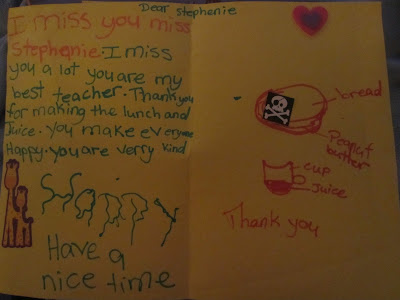 Dear Stephenie
I miss you miss
Stephenie. I miss
you a lot you are my
best teacher. Thank you
for making the lunch and
Juice. You make everyone
Happy. you are verry kind
Have a
nice time
bread
Peanut
butter
cup
Juice
Thank you